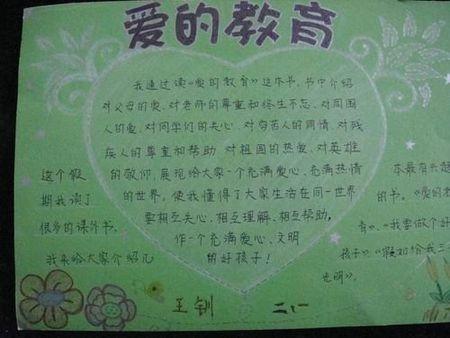 爱的教育
我通过读《爱的教育》这本书,书中介绍
对父母的爱、对老师的尊重和终生不忘、对周围
人的爱、对同学们的关心、对穷苦人的同情、对残
疾人的尊重和帮助、对祖国的热爱、对英雄
的敬仰,展现给大家一个充满爱心、充满热情
的世界,使我懂得了大家生活在同一世界
要相互关心、相互理解、相互帮助,
作一个充满爱心、文明
的好孩子!
这个假
期我读了
很多的课外书,
我来给大家介绍几
本最有
的书。《爱的
育》、《我要做个好
孩子》《假如给我三
光明》。
王钏
二、一